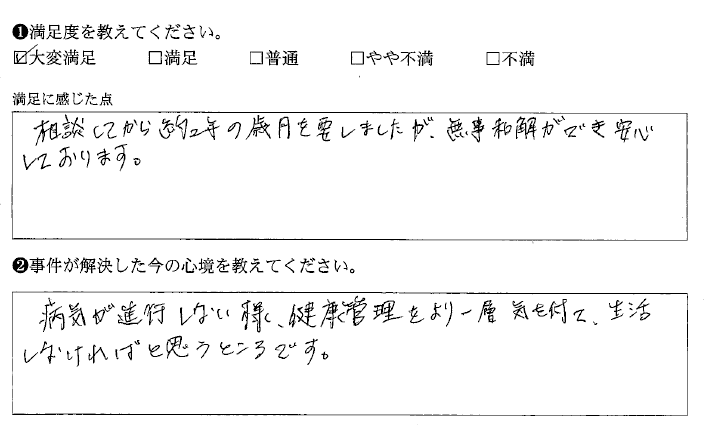 ❶満足度を教えてください。
☑大変満足 □満足 □普通 □やや不満 □不満
満足に感じた点
相談してから約2年の歳月を要しましたが、無事和解ができ安心
しております。
❷事件が解決した今の心境を教えてください。
病気が進行しない様に、健康管理をより一層気を付て、生活
しなければと思うところです。